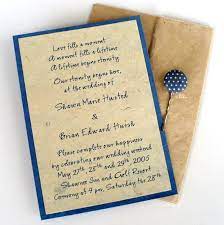 Love fills a moment
A moment fills a lifetime
A lifetime begins eternity
Our eternity begins here,
at the wedding of
Shawn Marie Husted
&
Brian Edward Hwish
Please complete our happiness
by celebrating our wedding weekend
May 27th, 28th and 29th, 2005
Shawnee Inn and Golf Resort
Ceremony at 4 pm, Saturday the 28th